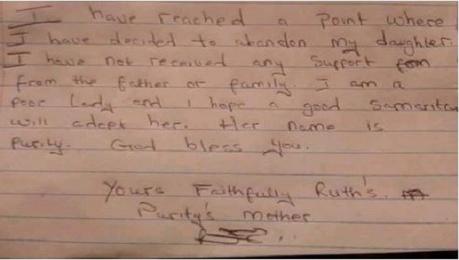 I have reached a point where
I have decided to abandon my daughter.
I have not received any support from
from the father or family. I am a
poor lady and I hope a good samaritan
will adopt her. Her name is
Purity. God bless you.
Yours Faithfully Ruth's.
Purity's mother